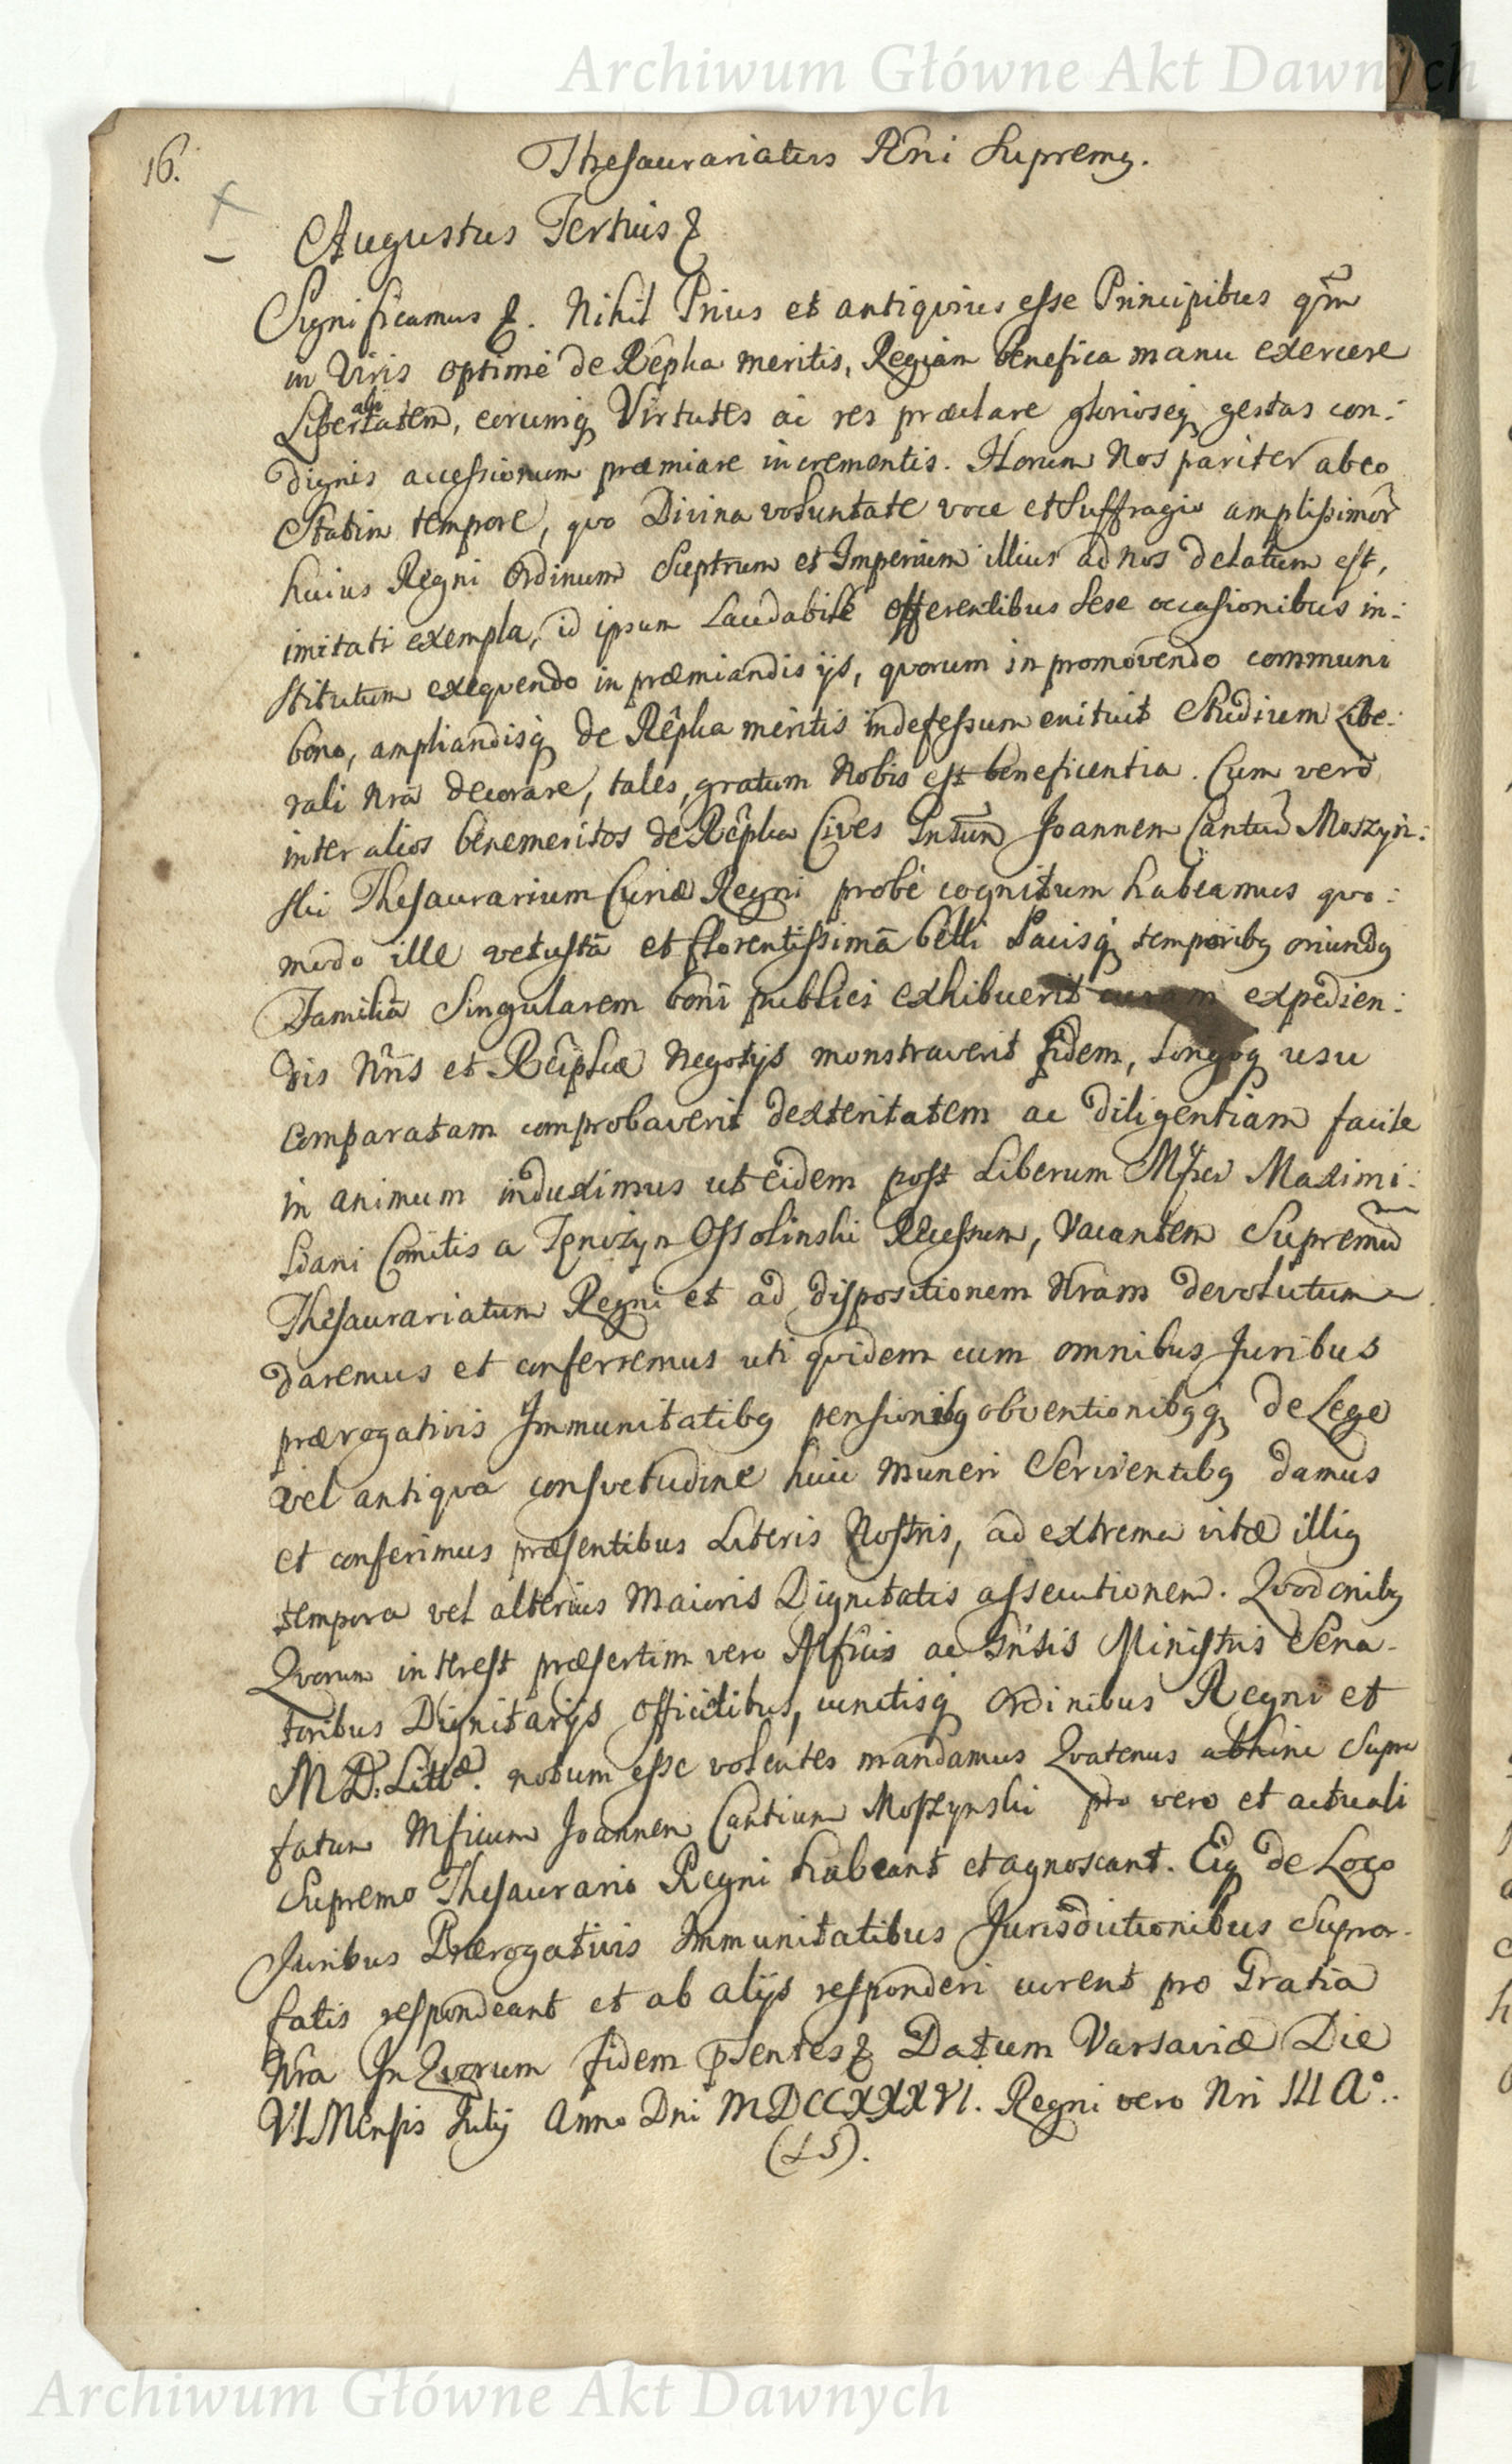 Archiwum Główne Akt Dawnych
16.
Thesaurariatus Rni Supremg.
Augustus Tertius
Significamus . Nihil Prius et antiquius esse Principibus qm̃
in Viris optimè de Rêpha meritis, Regiam benefica manu exercere
Libertatem, eorumq Virtutes ac res præclare glorioseq gestas con:
dignis accessionum præmiare incrementis. Horum Nos pariter ab eo
Statim tempore, quo Divina voluntate voce et Suffragio amplissimor̃
huius Regni Ordinum Sceptrum et Imperium illius ad nos delatum est,
imitati exempla, id ipsum Laudabile offerentibus Sese occasionibus in:
stitutum exequendo in præmiandis ijs, quorum in promovendo communi
bono, ampliandisq de Rêpha meritis indefessum enituit Studium Libe:
rali Nrã decorare, tales, gratum Nobis est beneficentia. Cum verò
inter alios benemeritos de Rêpha Cives Gnsum Joannem Cantiũ Moszyń:
ski Thesaurarium Curiæ Regni probè cognitum habeamus quo:
modo ille vetustã et florentissimã belli Pacisq temporibg oriundg
Familiã Singularem boni publici exhibuerit curam expedien:
dis Nris et Reiphcæ Negotijs monstraverit fidem, Longoq usu
comparatam comprobaverit dexteritatem ac diligentiam facile
in animum induximus ut eidem post Liberum Mfici Maximi:
liani Comitis a Tęnczyn Ossolinski Recessum, Vacantem Supremũ
Thesaurariatum Regni et ad dispositionem Nram devolutum
daremus et conferremus uti quidem cum omnibus Juribus
prærogativis Immunitatibg pensionibg obventionibgq de Lege
vel antiqua consvetudine huic muneri Servientibg damus
et conferimus præsentibus Literis Nostris, ad extrema vitæ illig
tempora vel alterius Maioris Dignitatis assecutionem. Quod omibg
Quorum interest præsertim vero Mficis ac Gnsis Ministris Sena-
toribus Dignitarijs Officialibus, cunctisq Ordinibus Regni et
M D. Littæ. notum esse volentes mandamus Quatenus abhinc Supra
fatum Mficum Joannem Cantium Moszynski pro vero et actuali
Supremo Thesaurario Regni habeant et agnoscant. Eiq de Loco
Juribus Prærogativis Immunitatibus Jurisdictionibus Supra-
fatis respondeant et ab alijs responderi curent pro Gratia
Nra In Quorum fidem psentes Datum Varsaviæ Die
VI Mensis Julij Anno Dni MDCCXXXVI. Regni vero Nri III A°.
(LS).
Archiwum Główne Akt Dawnych